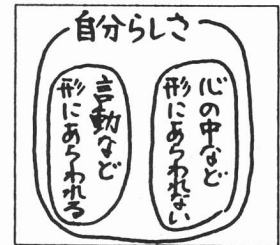 自分らしさ
心の中など
形にあらわれない
言動など
形にあらわれる